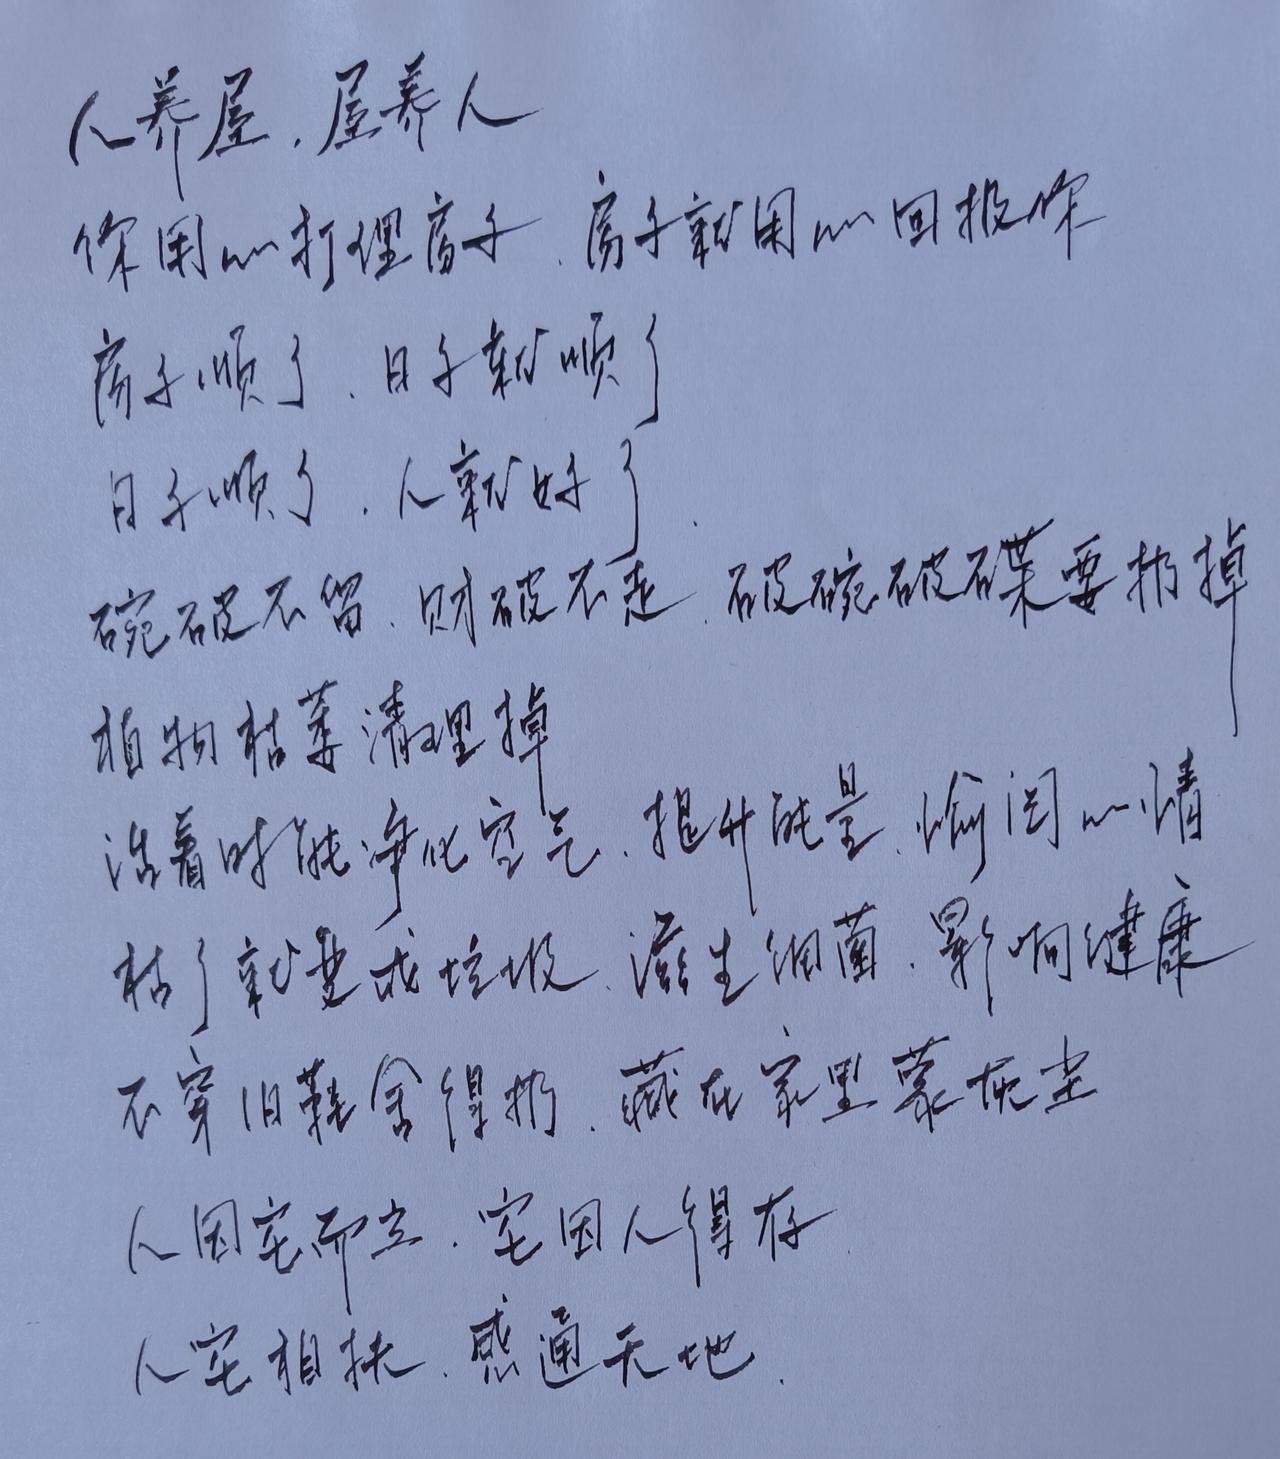 人养屋.屋养人
你用心打理房子.房子就用心回报你
房子顺了.日子就顺了
日子顺了.人就好了.
碗破不留.财破不走.破碗破碟要扔掉
植物枯萎清理掉
活着时能净化空气.提升能量.愉阅心情
枯了就变成垃圾.滋生细菌.影响健康
不穿旧鞋舍得扔.藏在家里蒙灰尘
人因宅而立.宅因人得存
人宅相扶.感通天地.